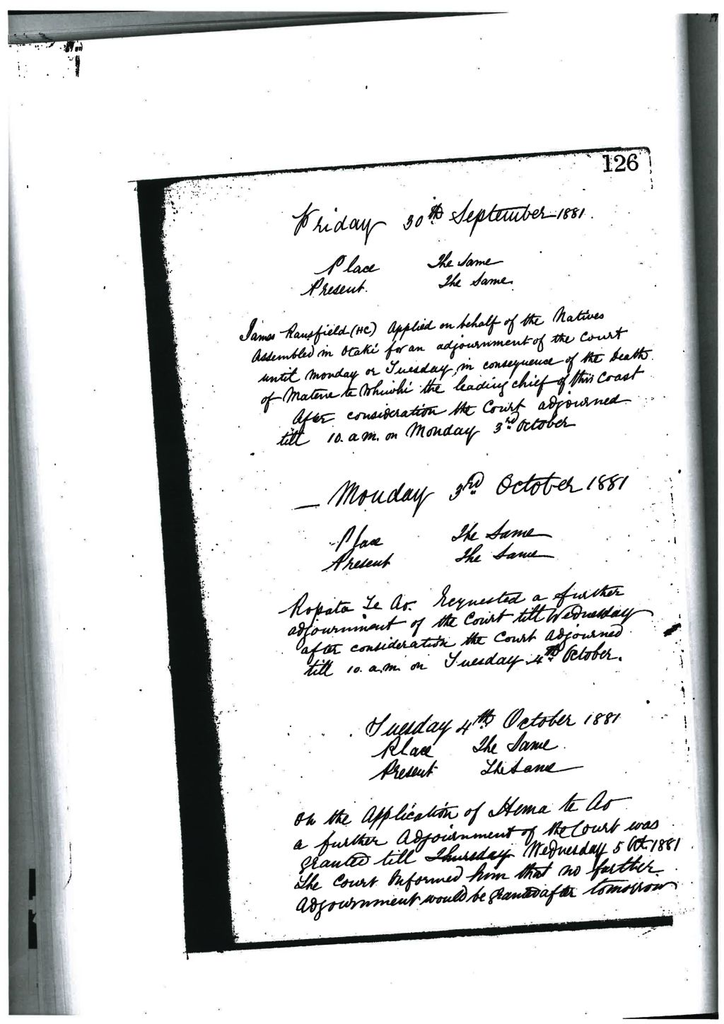 126
Friday 30th September 1881.
Place The Same
Present. The Same.
James Ransfield (HC) Applied on behalf of the Natives
Assembled in Otaki for an adjournment of the Court
until Monday or Tuesday in consequence of the Death
of Matene te Whiwhi the leading chief of this Coast
After consideration the Court adjourned
till 10. a.m. on Monday 3rd October
Monday 3rd October 1881
Place The Same
Present The Same
Ropata Te Ao. Requested a further
adjournment of the Court till Wednesday
after consideration the Court Adjourned
till 10. a.m. on Tuesday 4th October.
Tuesday 4th October 1881
Place The Same.
Present The Same
On the Application of Hema te Ao
a further Adjournment of the Court was
granted till Thursday Wednesday 5 Oct. 1881
The Court Informed him that no further
Adjournment would be granted after tomorrow